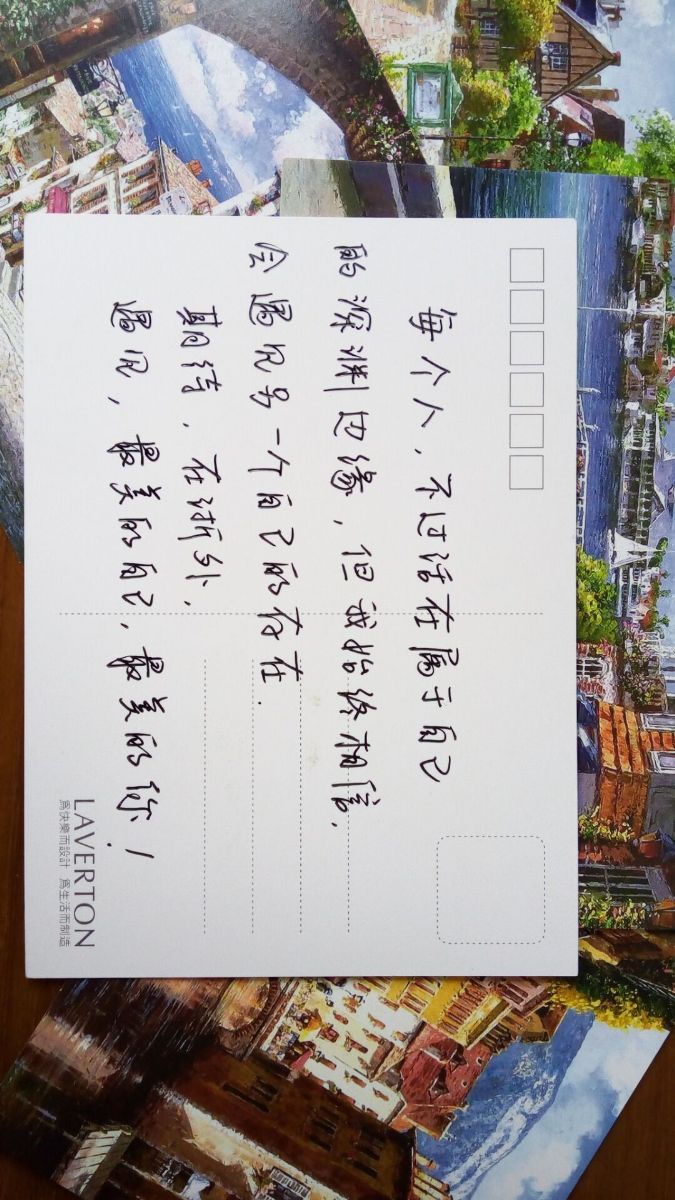 每个人，不过活在属于自己
的深渊边缘，但我始终相信，
会遇见另一个自己的存在．
期待，在浙外，
遇见，最美的自己，最美的你！
LAVERTON
為快樂而設計 為生活而制造